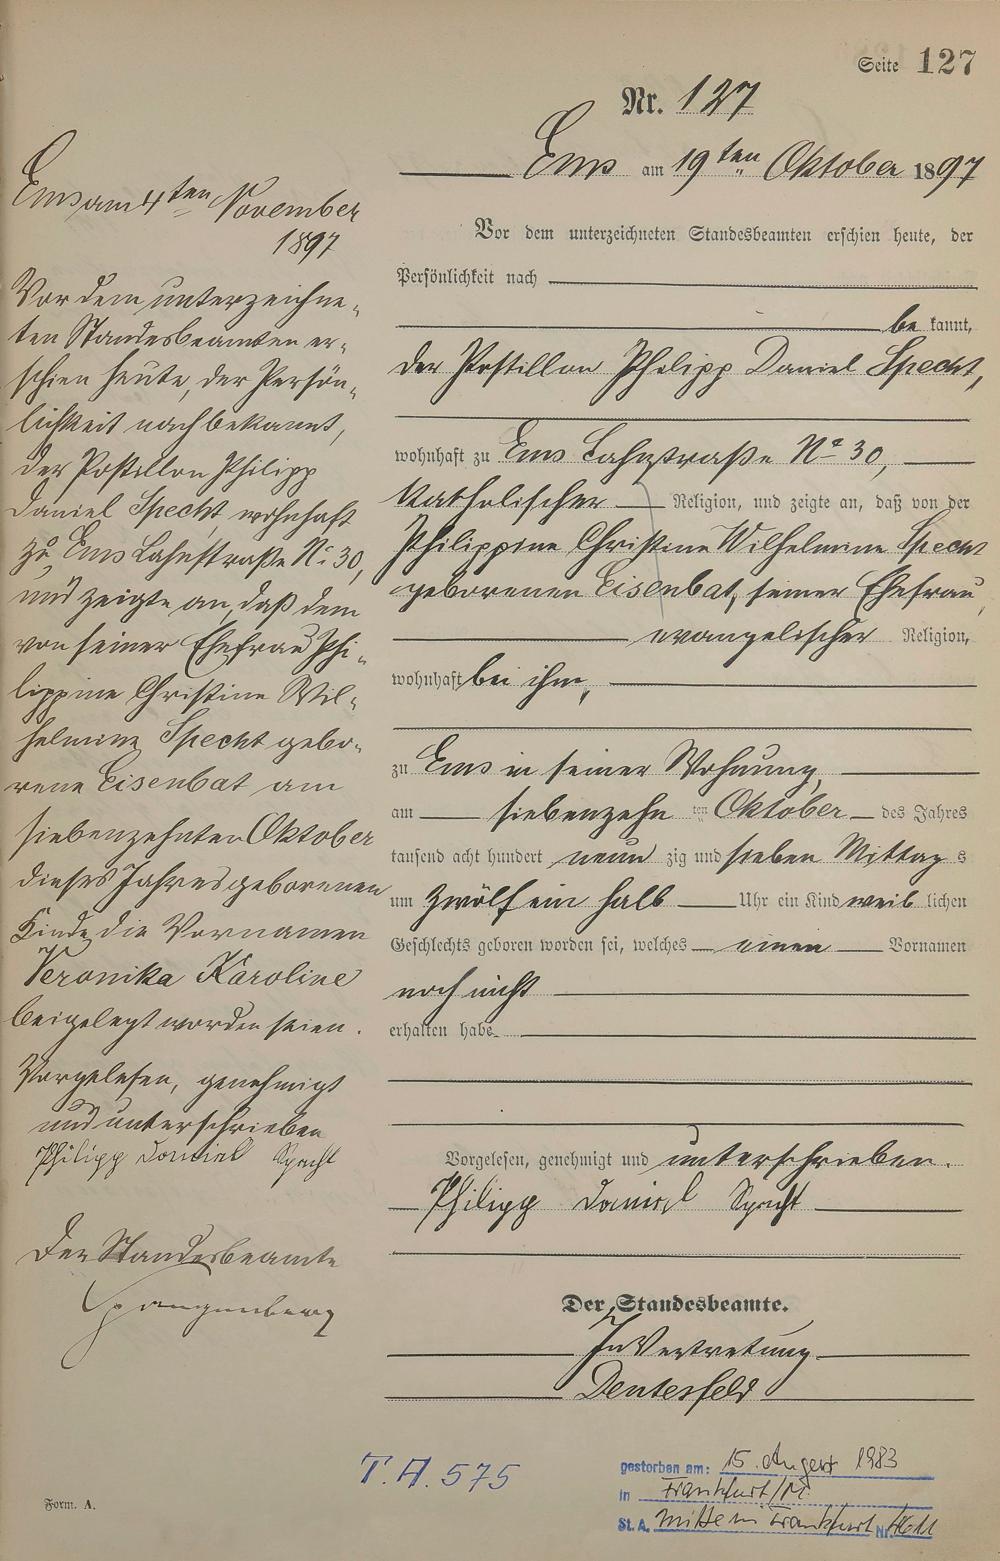 Seite 127
Nr. 127
Ems am 19ten Oktober 1897
Vor dem unterzeichneten Standesbeamten erschien heute, der
Persönlichkeit nach
be kannt,
der Postillon Philipp Daniel Specht,
wohnhaft zu Ems Lahnstraße No 30,
katholischer Religion, und zeigte an, daß von der
Philippine Christine Wilhelmine Specht
geborenen Eisenbat, seiner Ehefrau,
evangelischer Religion,
wohnhaft bei ihm,
zu Ems in seiner Wohnung,
am siebenzehn ten Oktober des Jahres
tausend acht hundert neun zig und sieben Mittag s
um zwölf ein halb Uhr ein Kind weib lichen
Geschlechts geboren worden sei, welches einen Vornamen
noch nicht
erhalten habe
Vorgelesen, genehmigt und unterschrieben.
Philipp Daniel Specht
Der Standesbeamte.
In Vertretung
Denterfeld
Ems am 4ten November
1897
Vor dem unterzeichne-
ten Standesbeamten er-
schien heute, der Persön-
lichkeit nach bekannt,
der Postillon Philipp
Daniel Specht, wohnhaft
zu Ems Lahnstraße No 30,
und zeigte an, daß dem
von seiner Ehefrau Phi-
lippine Christine Wil-
helmine Specht gebo-
rene Eisenbat am
siebenzehnten Oktober
dieses Jahres geborenen
Kinde die Vornamen
Veronika Karoline
beigelegt worden seien.
Vorgelesen, genehmigt
und unterschrieben
Philipp Daniel Specht
Der Standesbeamte
Spangenberg
T.A. 575
gestorben am: 15. August 1983
in Frankfurt/M.
St. A. Mitte in Frankfurt Nr. 4611
Form. A.